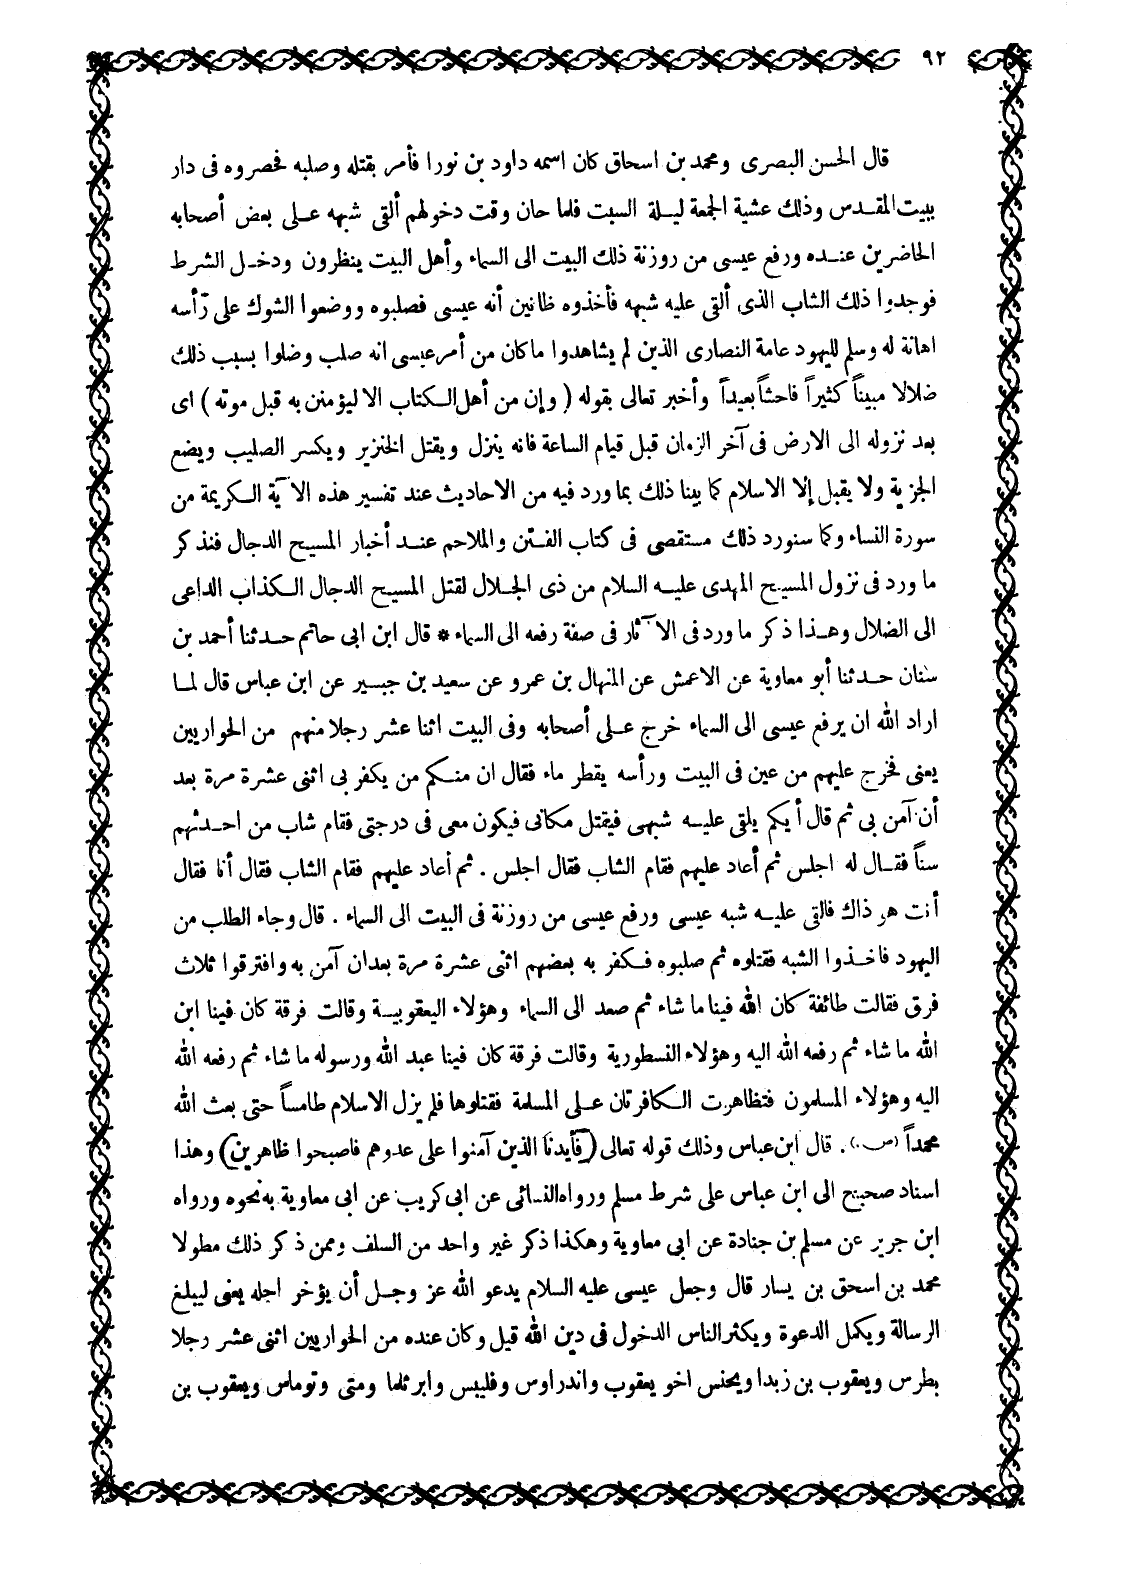 ٩٢
قال الحسن البصرى ومحمد بن اسحاق كان اسمه داود بن نورا فأمر بقتله وصلبه فحصروه فى دار
ببيت المقدس وذلك عشية الجمعة ليلة السبت فلما حان وقت دخولهم ألقى شبهه على بعض أصحابه
الحاضرين عنده ورفع عيسى من روزنة ذلك البيت الى السماء وأهل البيت ينظرون ودخل الشرط
فوجدوا ذلك الشاب الذى ألقى عليه شبهه فأخذوه ظانين أنه عيسى فصلبوه ووضعوا الشوك على رأسه
اهانة له وسلم لليهود عامة النصارى الذين لم يشاهدوا ما كان من أمر عيسى انه صلب وضلوا بسبب ذلك
ضلالا مبيناً كثيراً فاحشاً بعيداً وأخبر تعالى بقوله ( وإن من أهل الكتاب الا ليؤمنن به قبل موته ) اى
بعد نزوله الى الارض فى آخر الزمان قبل قيام الساعة فانه ينزل ويقتل الخنزير ويكسر الصليب ويضع
الجزية ولا يقبل إلا الاسلام كما بينا ذلك بما ورد فيه من الاحاديث عند تفسير هذه الآية الكريمة من
سورة النساء وكما سنورد ذلك مستقصى فى كتاب الفتن والملاحم عند أخبار المسيح الدجال فنذكر
ما ورد فى نزول المسيح المهدى عليه السلام من ذى الجلال لقتل المسيح الدجال الكذاب الداعى
الى الضلال وهذا ذكر ما ورد فى الآثار فى صفة رفعه الى السماء * قال ابن ابى حاتم حدثنا أحمد بن
سنان حدثنا أبو معاوية عن الاعمش عن المنهال بن عمرو عن سعيد بن جبير عن ابن عباس قال لما
اراد الله ان يرفع عيسى الى السماء خرج على أصحابه وفى البيت اثنا عشر رجلا منهم من الحواريين
يعنى فخرج عليهم من عين فى البيت ورأسه يقطر ماء فقال ان منكم من يكفر بى اثنى عشرة مرة بعد
أن آمن بى ثم قال أيكم يلقى عليه شبهى فيقتل مكانى فيكون معى فى درجتى فقام شاب من احدثهم
سناً فقال له اجلس ثم أعاد عليهم فقام الشاب فقال اجلس . ثم أعاد عليهم فقام الشاب فقال أنا فقال
أنت هو ذاك فالقى عليه شبه عيسى ورفع عيسى من روزنة فى البيت الى السماء . قال وجاء الطلب من
اليهود فاخذوا الشبه فقتلوه ثم صلبوه فكفر به بعضهم اثنى عشرة مرة بعد ان آمن به وافترقوا ثلاث
فرق فقالت طائفة كان الله فينا ما شاء ثم صعد الى السماء وهؤلاء اليعقوبية وقالت فرقة كان فينا ابن
الله ما شاء ثم رفعه الله اليه وهؤلاء النسطورية وقالت فرقة كان فينا عبد الله ورسوله ما شاء ثم رفعه الله
اليه وهؤلاء المسلمون فتظاهرت الكافرتان على المسلمة فقتلوها فلم يزل الاسلام طامساً حتى بعث الله
محمداً (ص.) . قال ابن عباس وذلك قوله تعالى ( فأيدنا الذين آمنوا على عدوهم فاصبحوا ظاهرين ) وهذا
اسناد صحيح الى ابن عباس على شرط مسلم ورواه النسائى عن ابى كريب عن ابى معاوية به نحوه ورواه
ابن جرير عن مسلم بن جنادة عن ابى معاوية وهكذا ذكر غير واحد من السلف وممن ذكر ذلك مطولا
محمد بن اسحق بن يسار قال وجعل عيسى عليه السلام يدعو الله عز وجل أن يؤخر اجله يعنى ليبلغ
الرسالة ويكمل الدعوة ويكثر الناس الدخول فى دين الله قيل وكان عنده من الحواريين اثنى عشر رجلا
بطرس ويعقوب بن زبدا ويحنس اخو يعقوب واندراوس وفليبس وابرثلما ومتى وتوماس ويعقوب بن